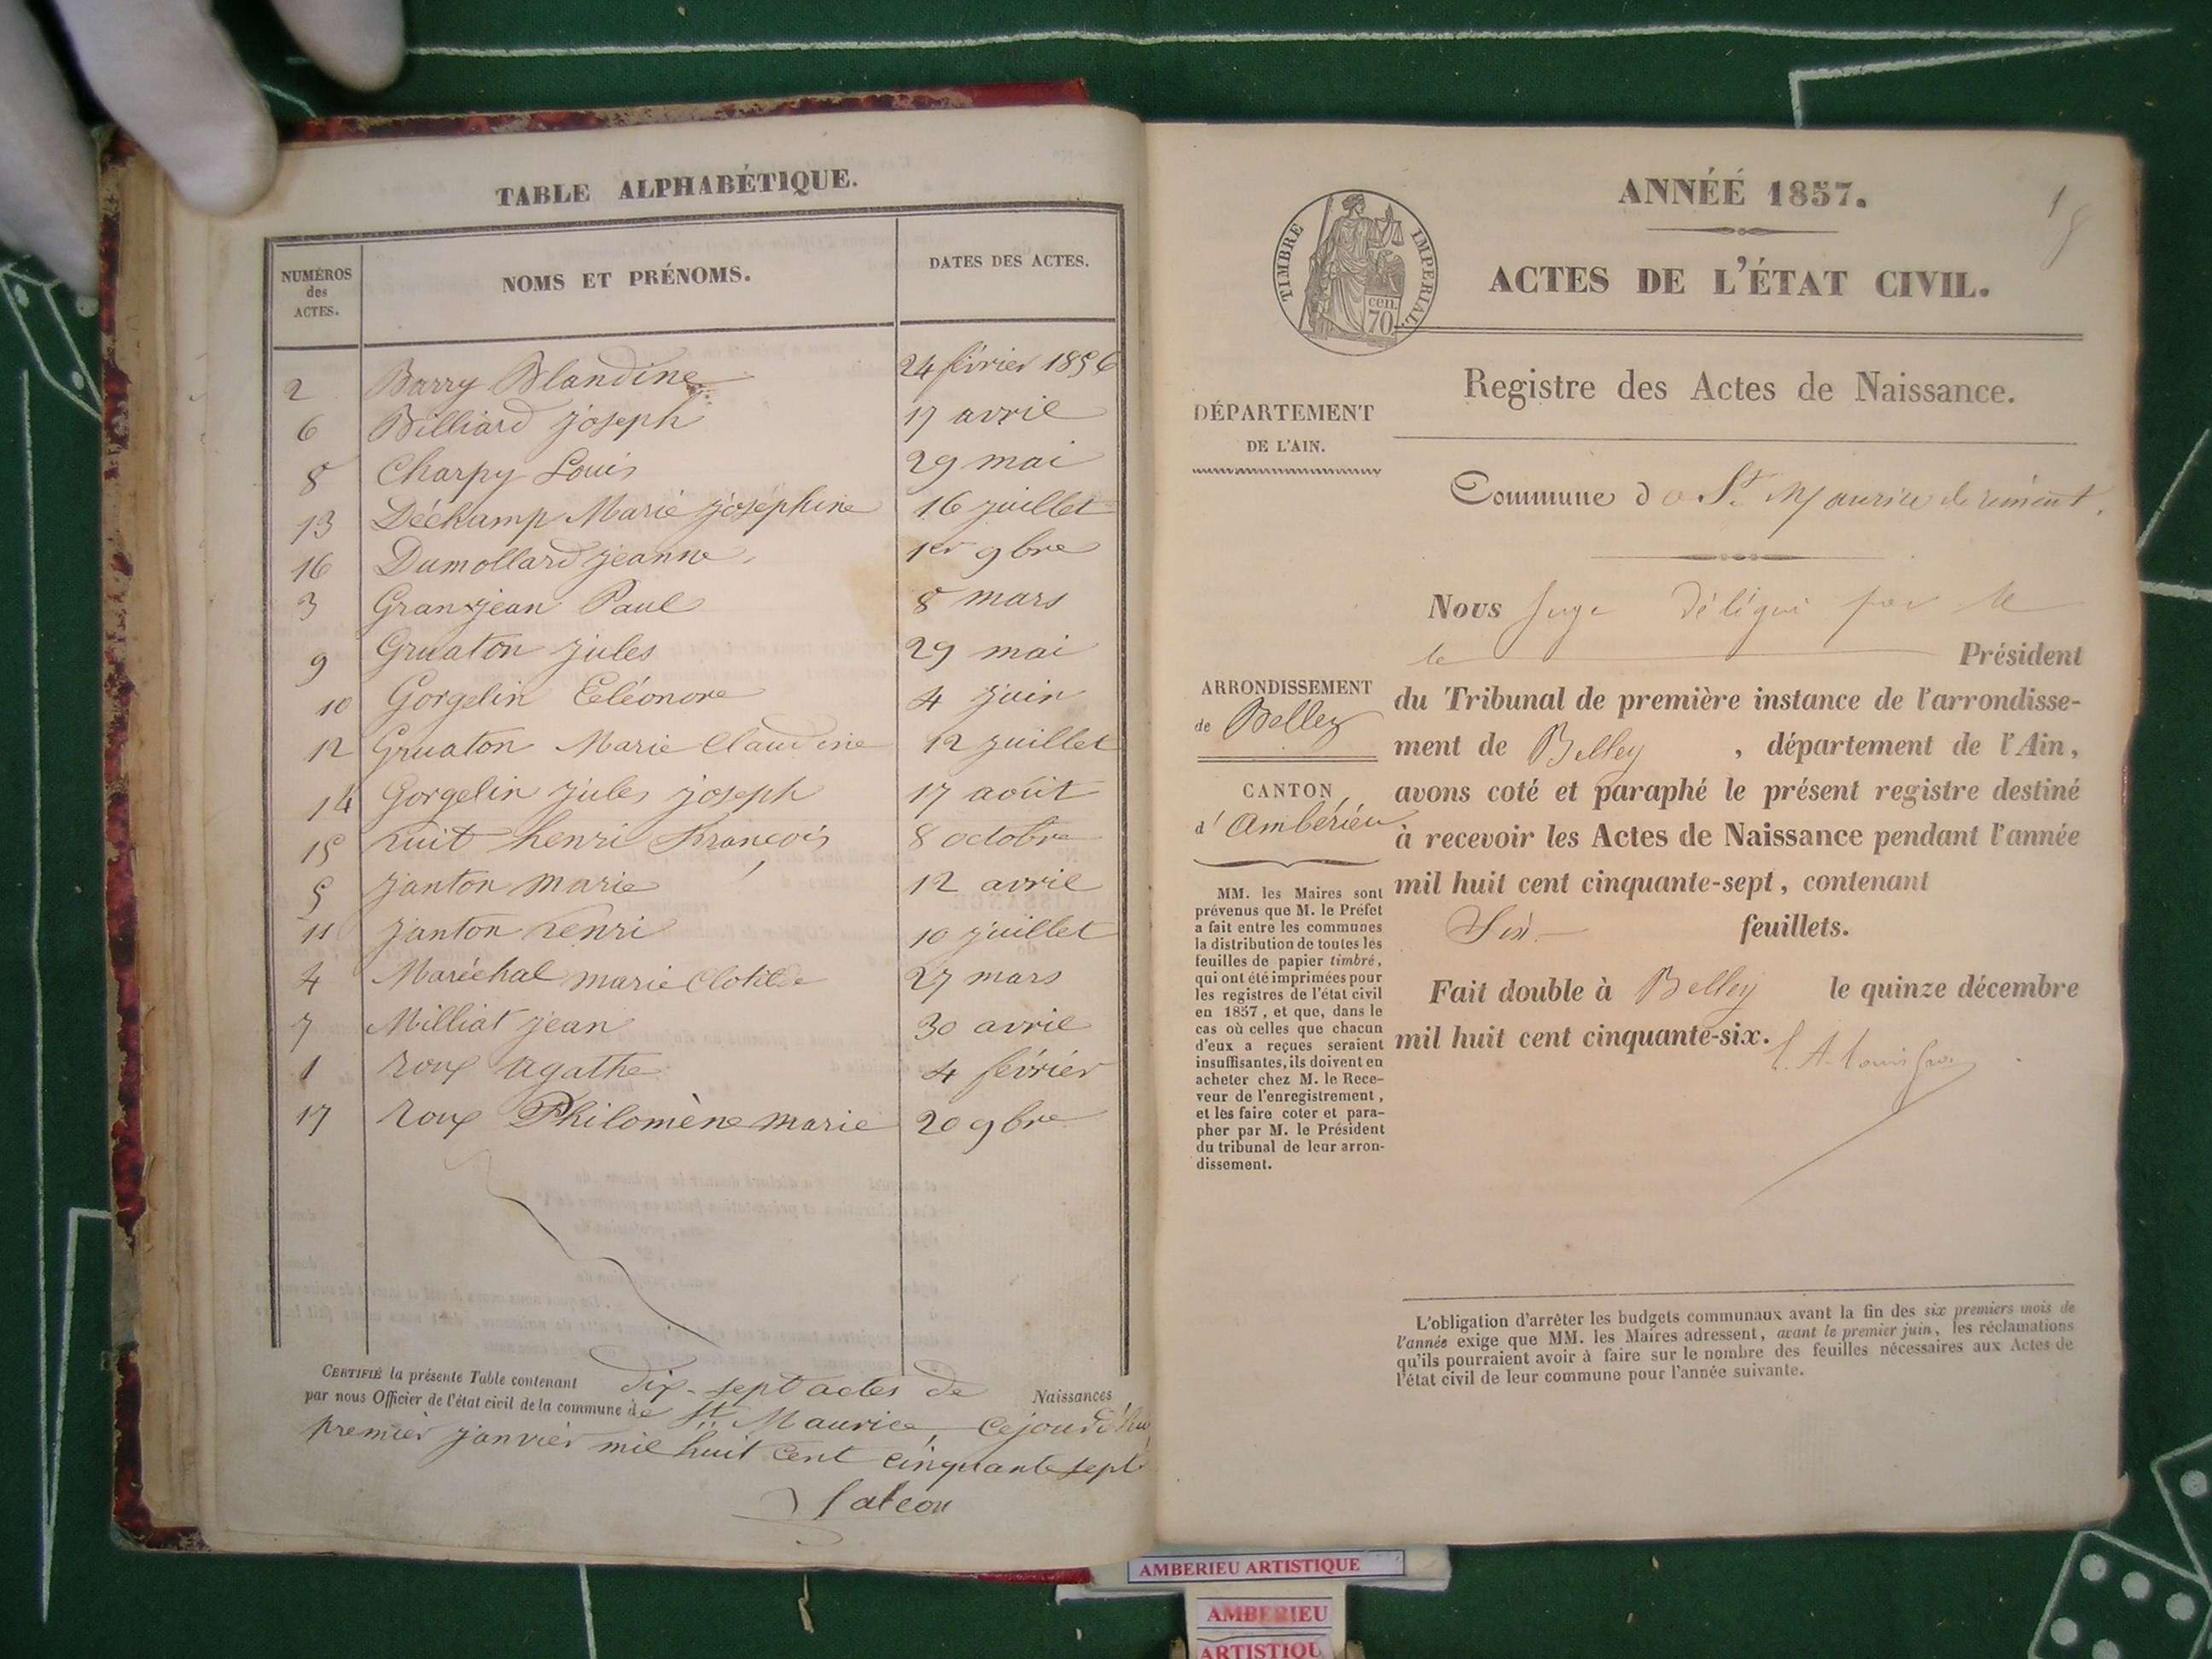 TABLE ALPHABÉTIQUE.
NUMÉROS des ACTES. NOMS ET PRÉNOMS. DATES DES ACTES.
2 Barry Blandine 24 février 1856
6 Billiard joseph 17 avril
8 Charpy Louis 29 mai
13 Déchamp Marie joséphine 16 juillet
16 Dumollard jeanne 1er 9bre
3 Granjean Paul 8 mars
9 Gruaton jules 29 mai
10 Gorgelin Eéléonore 4 juin
12 Gruaton Marie Claudine 12 juillet
14 Gorgelin jules joseph 17 août
15 huit henri François 8 octobre
5 janton marie 12 avril
11 janton henri 10 juillet
4 Maréchal marie Clotilde 27 mars
7 Milliat jean 30 avril
1 roux agathe 4 février
17 roux Philomène marie 20 9bre
CERTIFIÉ la présente Table contenant dix-sept actes de Naissances
par nous Officier de l'état civil de la commune de St Maurice, cejourd'hui
premier janvier mil huit cent cinquante sept
ANNÉÉ 1857.
TIMBRE IMPERIAL
cen. 70
ACTES DE L'ÉTAT CIVIL.
Registre des Actes de Naissance.
DÉPARTEMENT
DE L'AIN.
Commune de St. Maurice de rémens.
ARRONDISSEMENT
de Belley
CANTON
d'Ambérieu
MM. les Maires sont
prévenus que M. le Préfet
a fait entre les communes
la distribution de toutes les
feuilles de papier timbré,
qui ont été imprimées pour
les registres de l'état civil
en 1857, et que, dans le
cas où celles que chacun
d'eux a reçues seraient
insuffisantes, ils doivent en
acheter chez M. le Rece-
veur de l'enregistrement,
et les faire coter et para-
pher par M. le Président
du tribunal de leur arron-
dissement.
Nous Juge délégué par le
le Président
du Tribunal de première instance de l'arrondisse-
ment de Belley, département de l'Ain,
avons coté et paraphé le présent registre destiné
à recevoir les Actes de Naissance pendant l'année
mil huit cent cinquante-sept, contenant
Six feuillets.
Fait double à Belley le quinze décembre
mil huit cent cinquante-six.
L'obligation d'arrêter les budgets communaux avant la fin des six premiers mois de
l'année exige que MM. les Maires adressent, avant le premier juin, les réclamations
qu'ils pourraient avoir à faire sur le nombre des feuilles nécessaires aux Actes de
l'état civil de leur commune pour l'année suivante.
AMBERIEU ARTISTIQUE
AMBERIEU
ARTISTIQU